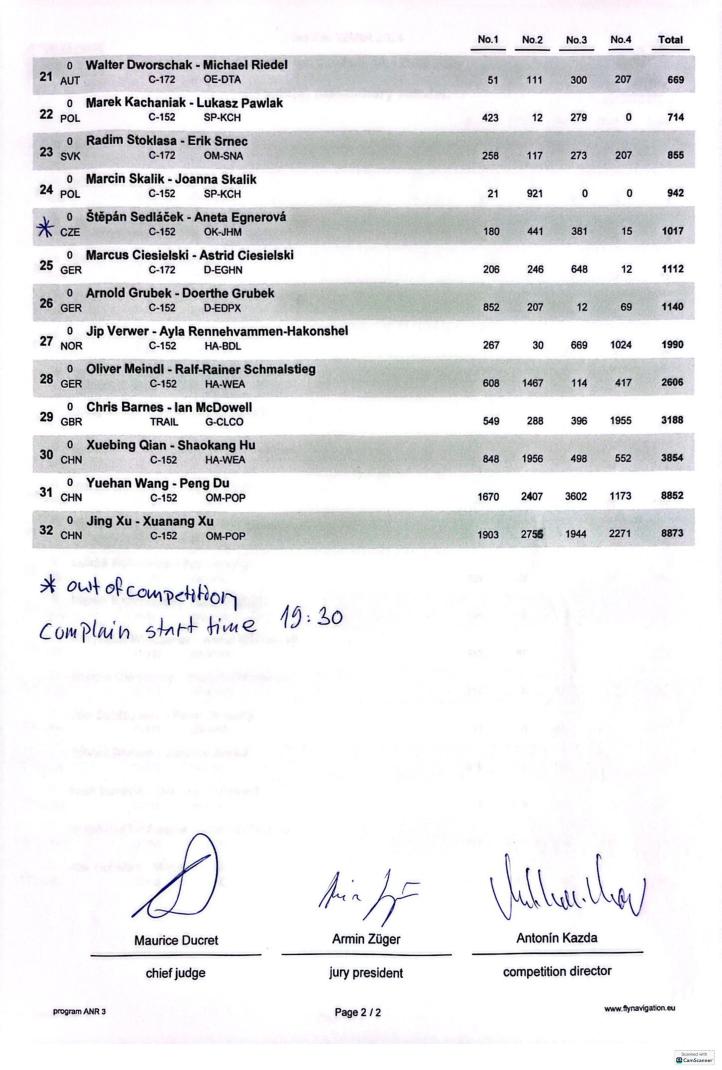 No.1 No.2 No.3 No.4 Total
0 Walter Dworschak - Michael Riedel
21 AUT C-172 OE-DTA 51 111 300 207 669
0 Marek Kachaniak - Lukasz Pawlak
22 POL C-152 SP-KCH 423 12 279 0 714
0 Radim Stoklasa - Erik Srnec
23 SVK C-172 OM-SNA 258 117 273 207 855
0 Marcin Skalik - Joanna Skalik
24 POL C-152 SP-KCH 21 921 0 0 942
0 Štěpán Sedláček - Aneta Egnerová
* CZE C-152 OK-JHM 180 441 381 15 1017
0 Marcus Ciesielski - Astrid Ciesielski
25 GER C-172 D-EGHN 206 246 648 12 1112
0 Arnold Grubek - Doerthe Grubek
26 GER C-152 D-EDPX 852 207 12 69 1140
0 Jip Verwer - Ayla Rennehvammen-Hakonshel
27 NOR C-152 HA-BDL 267 30 669 1024 1990
0 Oliver Meindl - Ralf-Rainer Schmalstieg
28 GER C-152 HA-WEA 608 1467 114 417 2606
0 Chris Barnes - Ian McDowell
29 GBR TRAIL G-CLCO 549 288 396 1955 3188
0 Xuebing Qian - Shaokang Hu
30 CHN C-152 HA-WEA 848 1956 498 552 3854
0 Yuehan Wang - Peng Du
31 CHN C-152 OM-POP 1670 2407 3602 1173 8852
0 Jing Xu - Xuanang Xu
32 CHN C-152 OM-POP 1903 2755 1944 2271 8873
* out of competition
Complain start time 19:30
Maurice Ducret Armin Züger Antonín Kazda
chief judge jury president competition director
program ANR 3 Page 2 / 2 www.flynavigation.eu
Scanned with
CamScanner